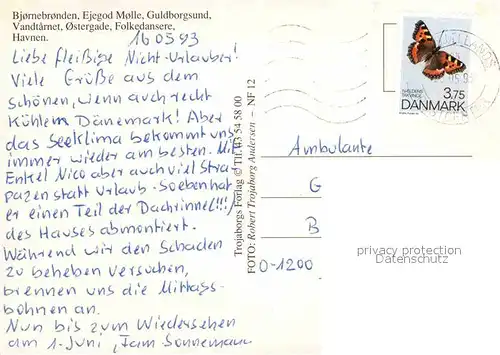 Bjørnebrønden, Ejegod Mølle, Guldborgsund,
Vandtårnet, Østergade, Folkedansere,
Havnen.
16 05 93
Liebe fleißige Nicht-Urlauber!
Viele Grüße aus dem
schönen, wenn auch recht
kühlem Dänemark! Aber
das Seeklima bekommt uns
immer wieder am besten. Mit
Enkel Nico aber auch viel Stra
pazen statt Urlaub - Soeben hat
er einen Teil der Dachrinne!!!
des Hauses abmontiert.
Während wir den Schaden
zu beheben versuchen,
brennen uns die Mittags-
bohnen an.
Nun bis zum Wiedersehen
am 1. Juni, Fam Sonnemann
Trojaborgs Forlag © Tlf. 03 54 58 00
FOTO: Robert Trojaborg Andersen – NF 12
3.75
DANMARK
Ambulante
G
B
O-1200
privacy protection
Datenschutz